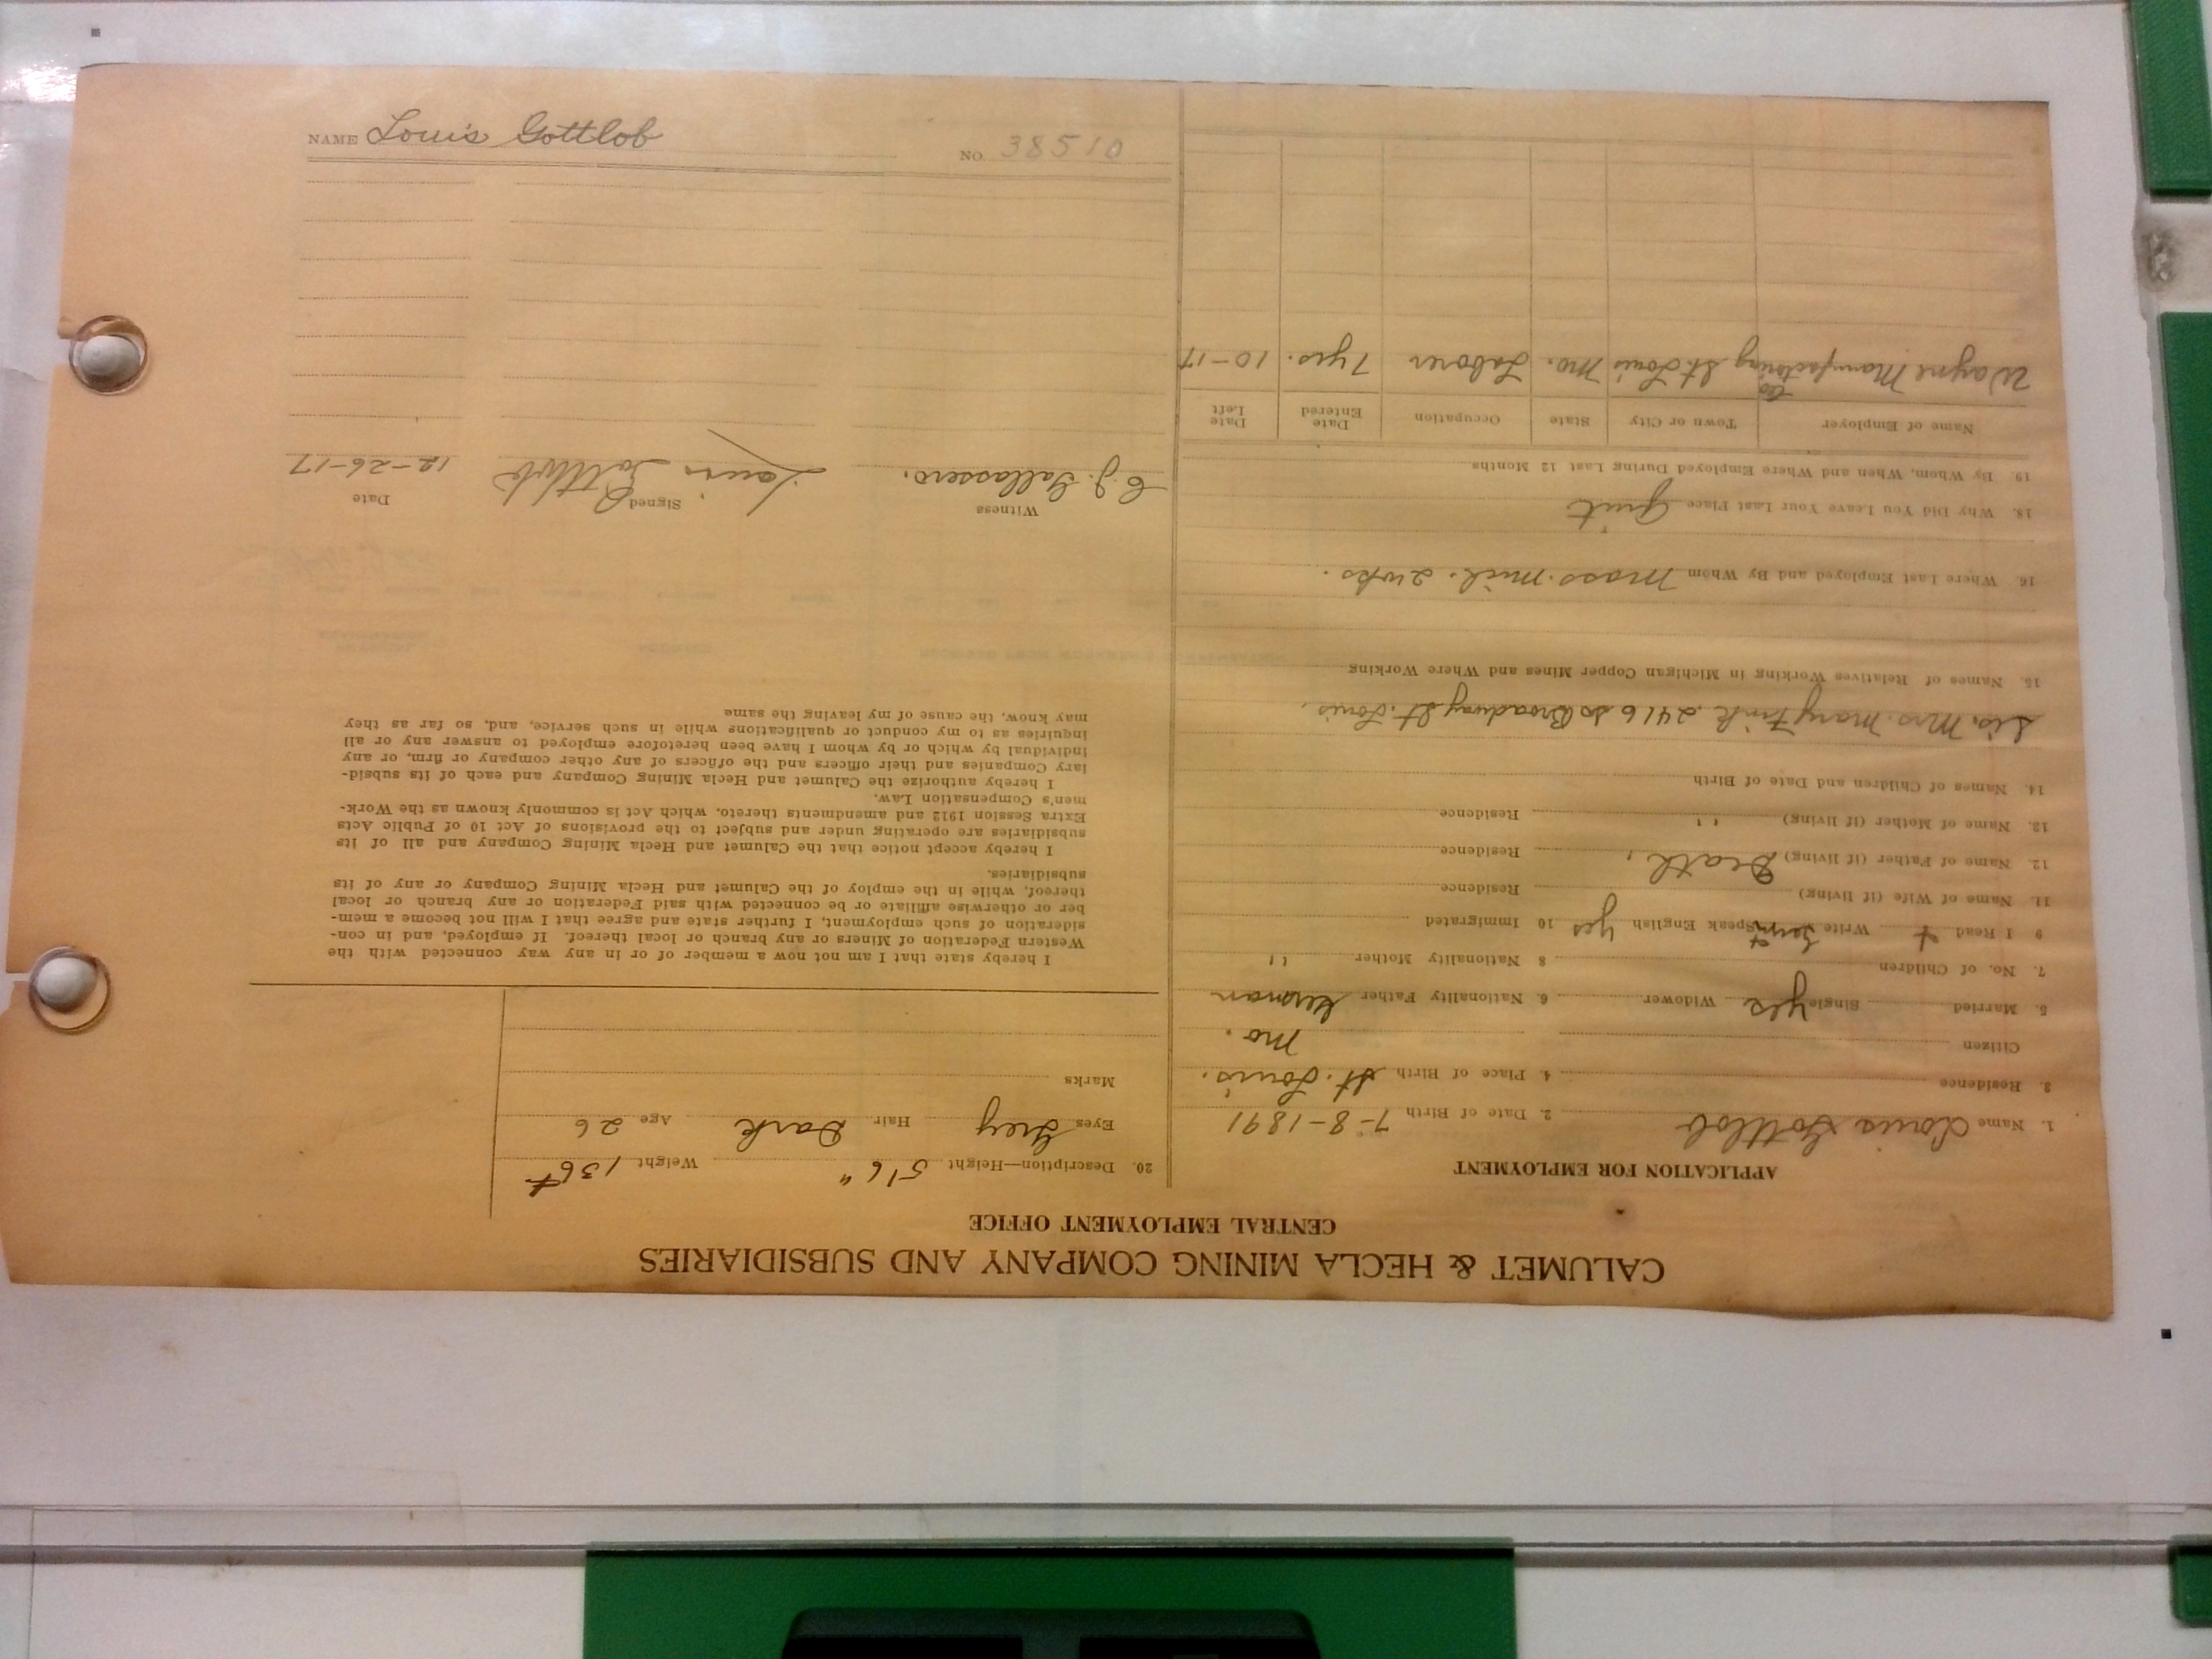 CALUMET & HECLA MINING COMPANY AND SUBSIDIARIES
CENTRAL EMPLOYMENT OFFICE
APPLICATION FOR EMPLOYMENT
1. Name Louis Gottlob 2. Date of Birth 7-8-1891
3. Residence 4. Place of Birth St. Louis.
Citizen Mo.
5. Married Single yes Widower 6. Nationality Father German
7. No. of Children 8 Nationality Mother "
9 I Read Write Speak English yes 10 Immigrated
11. Name of Wife (if living) Residence
12. Name of Father (if living) Death, Residence
12. Name of Mother (if living) " Residence
14. Names of Children and Date of Birth
Sis. Mrs. Mary Fink 2416 So Broadway St. Louis.
15. Names of Relatives Working in Michigan Copper Mines and Where Working
16. Where Last Employed and By Whom Mass. Mich. 2 wks.
18. Why Did You Leave Your Last Place Quit
19. By Whom, When and Where Employed During Last 12 Months
Name of Employer Town or City State Occupation Date Entered Date Left
Wayne Manufactoring Co St. Louis Mo. Laborer 7 yrs. 10-17
20. Description—Height 5'6" Weight 136#
Eyes Grey Hair Dark Age 26
Marks
I hereby state that I am not now a member of or in any way connected with the
Western Federation of Miners or any branch or local thereof. If employed, and in con-
sideration of such employment, I further state and agree that I will not become a mem-
ber or otherwise affiliate or be connected with said Federation or any branch or local
thereof, while in the employ of the Calumet and Hecla Mining Company or any of its
subsidiaries.
I hereby accept notice that the Calumet and Hecla Mining Company and all of its
subsidiaries are operating under and subject to the provisions of Act 10 of Public Acts
Extra Session 1912 and amendments thereto, which Act is commonly known as the Work-
men's Compensation Law.
I hereby authorize the Calumet and Hecla Mining Company and each of its subsid-
iary Companies and their officers and the officers of any other company or firm, or any
individual by which or by whom I have been heretofore employed to answer any or all
inquiries as to my conduct or qualifications while in such service, and, so far as they
may know, the cause of my leaving the same
Witness Signed Date
C. J. Gallassero. Louis Gottlob 12-26-17
NAME Louis Gottlob NO. 38510